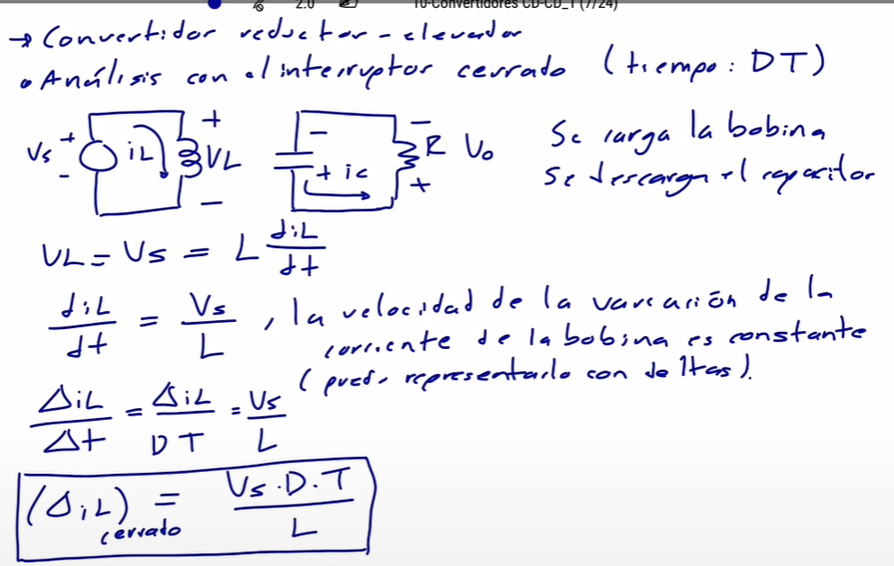 2.0 10-Convertidores CD-CD_1 (7/24)
→ Convertidor reductor - elevador
• Análisis con el interruptor cerrado (tiempo: DT)
Vs + - iL + VL - - + ic - R + Vo
Se carga la bobina
Se descarga el capacitor
VL = Vs = L diL/dt
diL/dt = Vs/L , la velocidad de la variación de la
corriente de la bobina es constante
(puedo representarlo con deltas).
ΔiL/Δt = ΔiL/DT = Vs/L
(ΔiL)cerrado = Vs·D·T/L